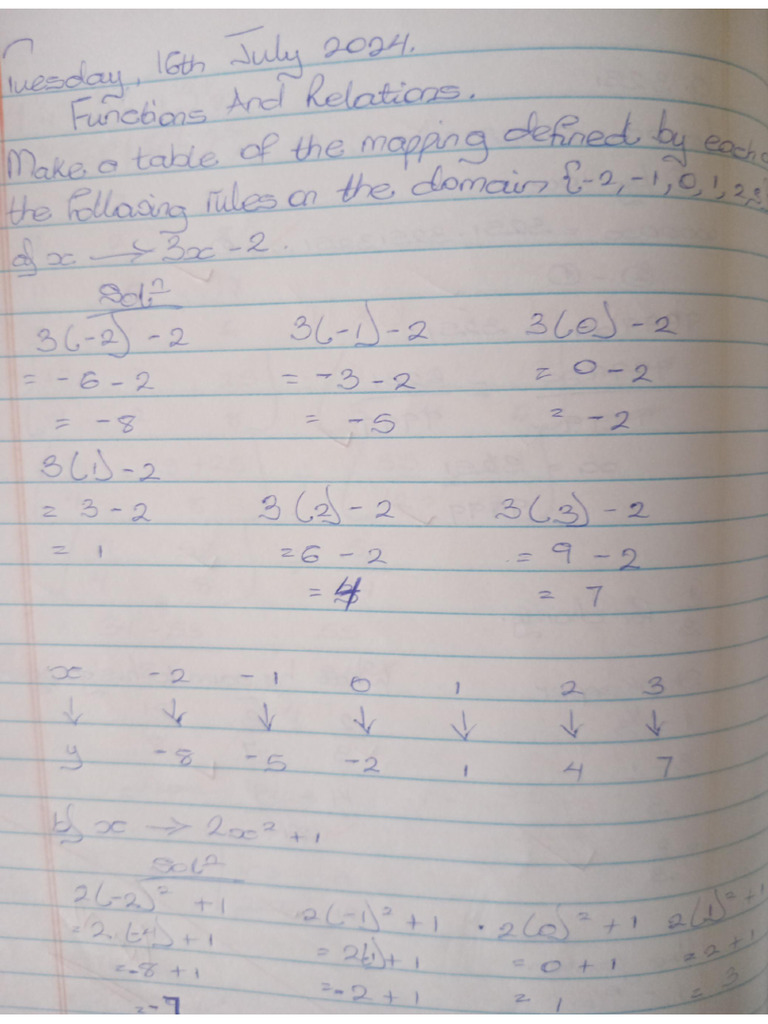 Tuesday, 16th July 2024.
Functions And Relations.
Make a table of the mapping defined by each
the following rules on the domain {-2, -1, 0, 1, 2,
a) x → 3x - 2.
Sol<sup>n</sup>
3(-2) - 2 3(-1) - 2 3(0) - 2
= -6 - 2 = -3 - 2 = 0 - 2
= -8 = -5 = -2
3(1) - 2
= 3 - 2 3(2) - 2 3(3) - 2
= 1 = 6 - 2 = 9 - 2
= 4 = 7
x -2 -1 0 1 2 3
↓ ↓ ↓ ↓ ↓ ↓ ↓
y -8 -5 -2 1 4 7
b) x → 2x² + 1
Sol<sup>n</sup>
2(-2)² + 1 2(-1)² + 1 2(0)² + 1 2(1)² + 1
= 2(-4) + 1 = 2(-1) + 1 = 0 + 1 = 2 + 1
= -8 + 1 = -2 + 1 = 1 = 3
= -7